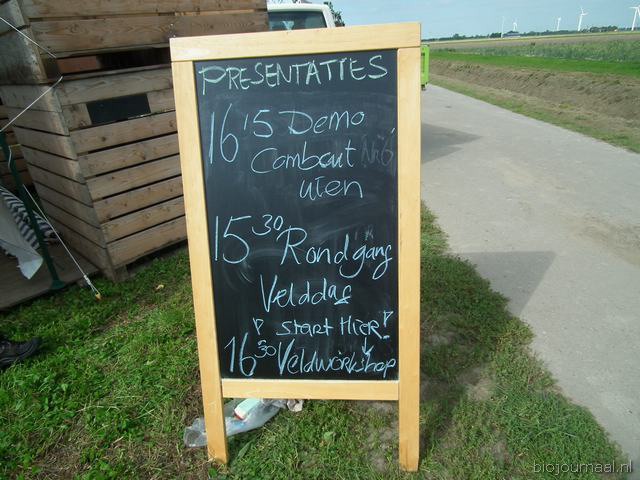 PRESENTATIES
16 15 Demo
Combeut Nr6
uien
15 30 Rondgang
Velddag
! START HIER!
16 30 Veldworkshop
biojournaal.nl